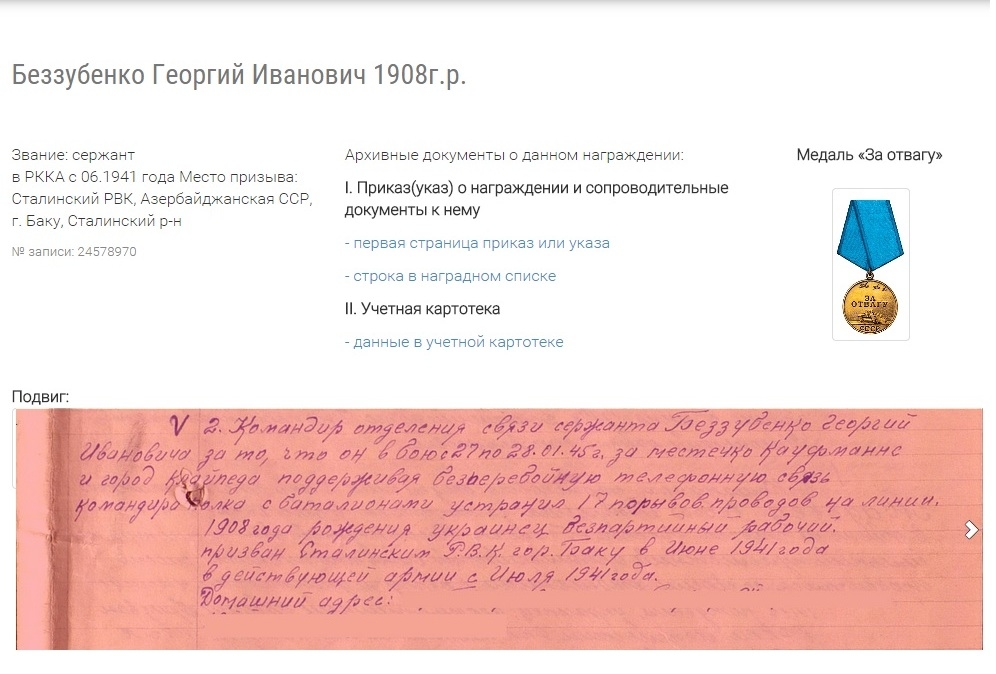 Беззубенко Георгий Иванович 1908г.р.
Звание: сержант
в РККА с 06.1941 года Место призыва:
Сталинский РВК, Азербайджанская ССР,
г. Баку, Сталинский р-н
№ записи: 24578970
Архивные документы о данном награждении:
I. Приказ(указ) о награждении и сопроводительные
документы к нему
- первая страница приказ или указа
- строка в наградном списке
II. Учетная картотека
- данные в учетной картотеке
Медаль «За отвагу»
ЗА
ОТВАГУ
СССР
Подвиг:
V 2. Командир отделения связи сержанта Беззубенко Георгий
Ивановича за то, что он в бою с 27 по 28.01.45г. за местечко Кауфманнс
и город Клайпеда поддерживая безперебойную телефонную связь
командира полка с баталионами устранил 17 порывов проводов на линии.
1908 года рождения украинец безпартийный рабочий.
призван Сталинским Р.В.К. гор. Баку в Июне 1941 года
в действующей армии с Июля 1941 года.
Домашний адрес: